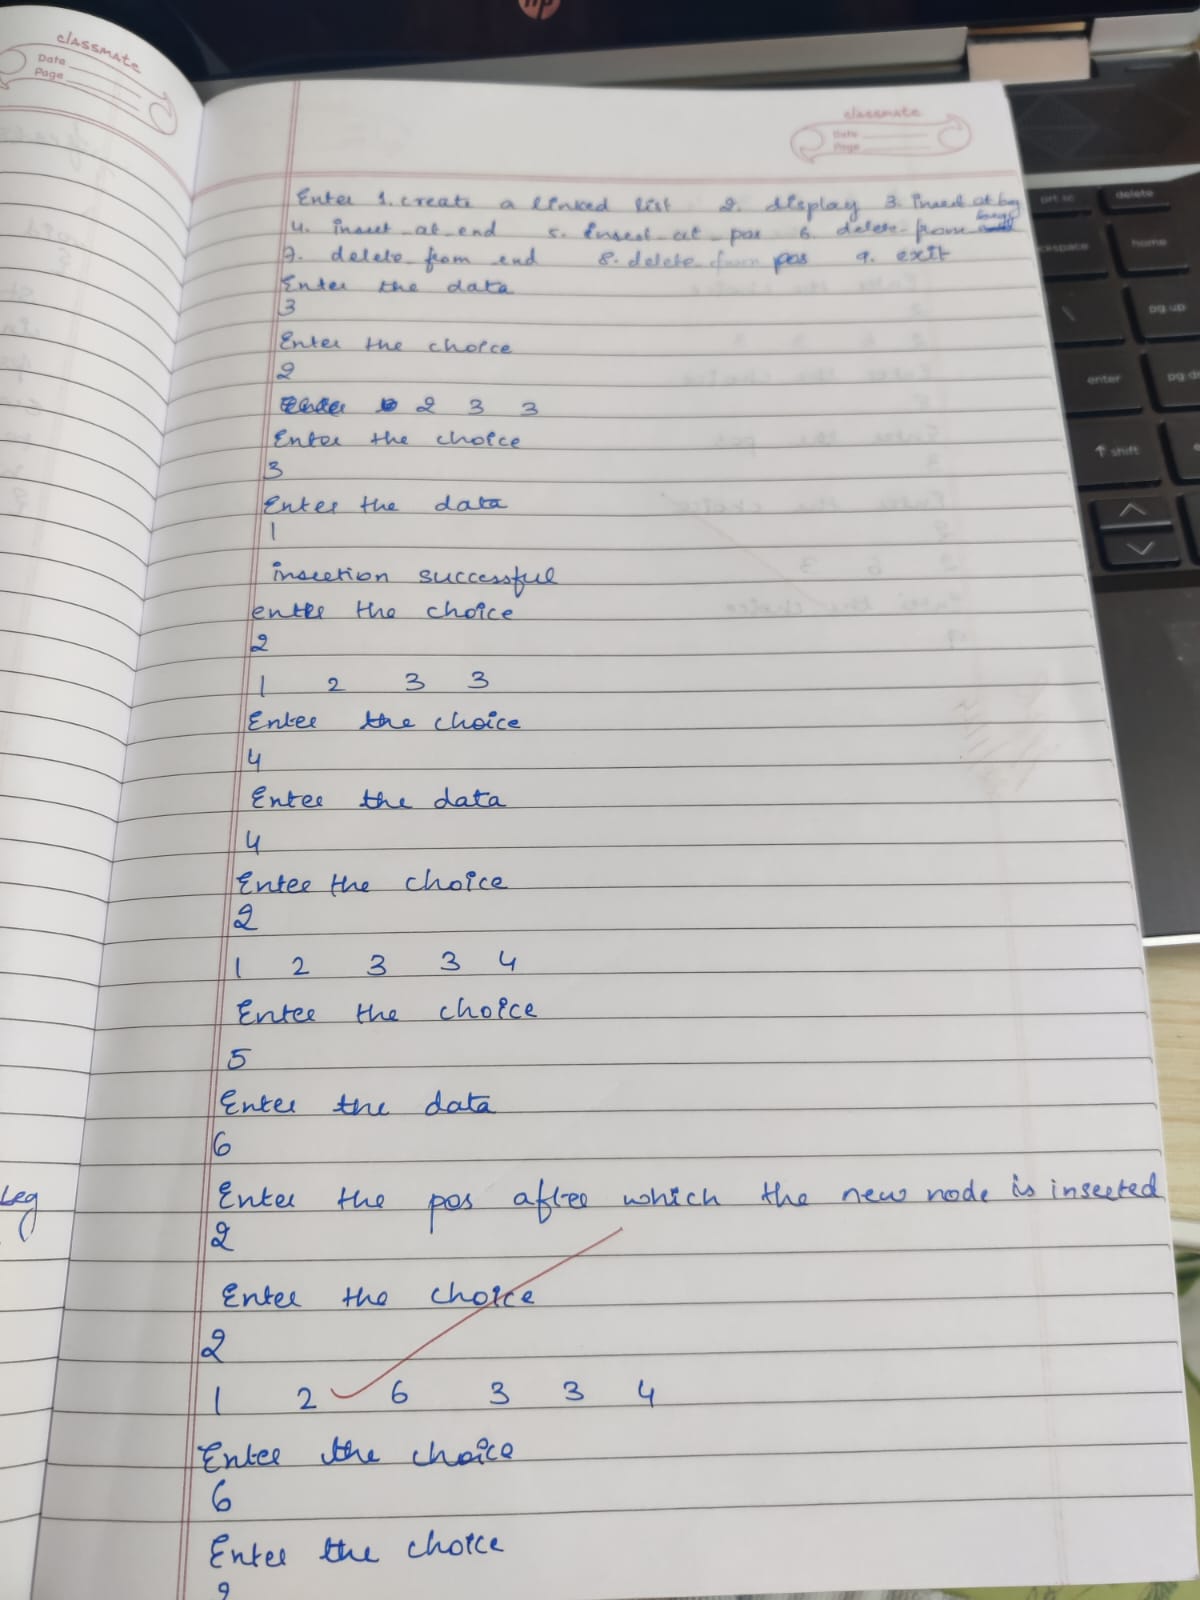 classmate
Date
Page
classmate
Date
Page
Enter 1. create a linked list 2. display 3. insert at beg
4. insert_at_end 5. insert_at_pos 6. delete_from
7. delete_from_end 8. delete_from pos 9. exit
Enter the data
3
Enter the choice
2
2 3 3
Enter the choice
3
Enter the data
1
insertion successful
enter the choice
2
1 2 3 3
Enter the choice
4
Enter the data
4
Enter the choice
2
1 2 3 3 4
Enter the choice
5
Enter the data
6
Enter the pos after which the new node is inserted
2
Enter the choice
2
1 2 6 3 3 4
Enter the choice
6
Enter the choice
2
hp
prt sc
delete
home
pg up
enter
shift